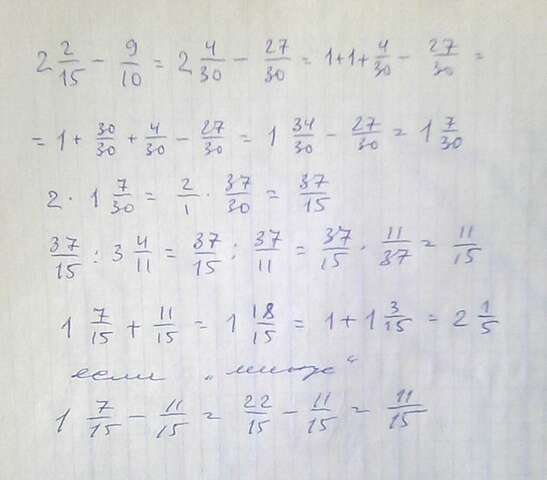 2 2/15 - 9/10 = 2 4/30 - 27/30 = 1+1+4/30 - 27/30 =
= 1 + 30/30 + 4/30 - 27/30 = 1 34/30 - 27/30 = 1 7/30
2 · 1 7/30 = 2/1 · 37/30 = 37/15
37/15 : 3 4/11 = 37/15 : 37/11 = 37/15 · 11/37 = 11/15
1 7/15 + 11/15 = 1 18/15 = 1 + 1 3/15 = 2 1/5
если „минус“
1 7/15 - 11/15 = 22/15 - 11/15 = 11/15